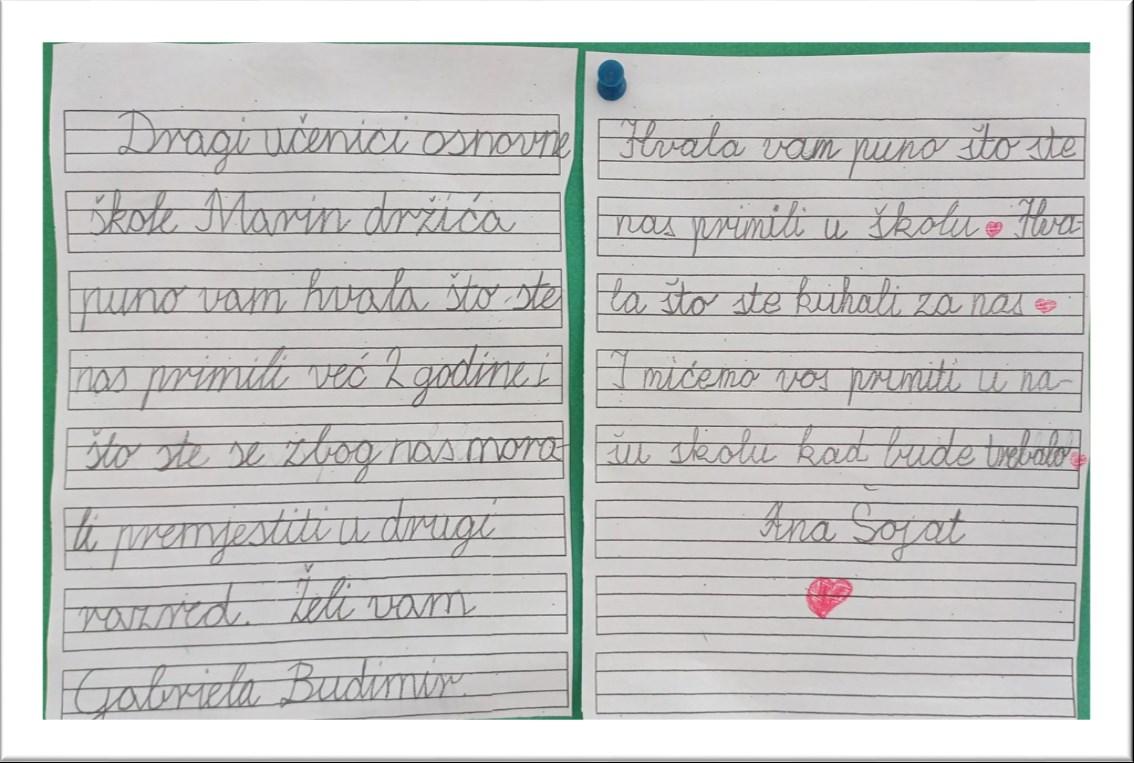 Dragi učenici osnovne
škole Marin držića
puno vam hvala što ste
nas primili već 2 godine i
što ste se zbog nas mora-
li premjestiti u drugi
razred. Želi vam
Gabriela Budimir.
Hvala vam puno što ste
nas primili u školu Hva-
la što ste kuhali za nas
I mićemo vas primiti u na-
šu skolu kad bude trebalo
Ana Šojat